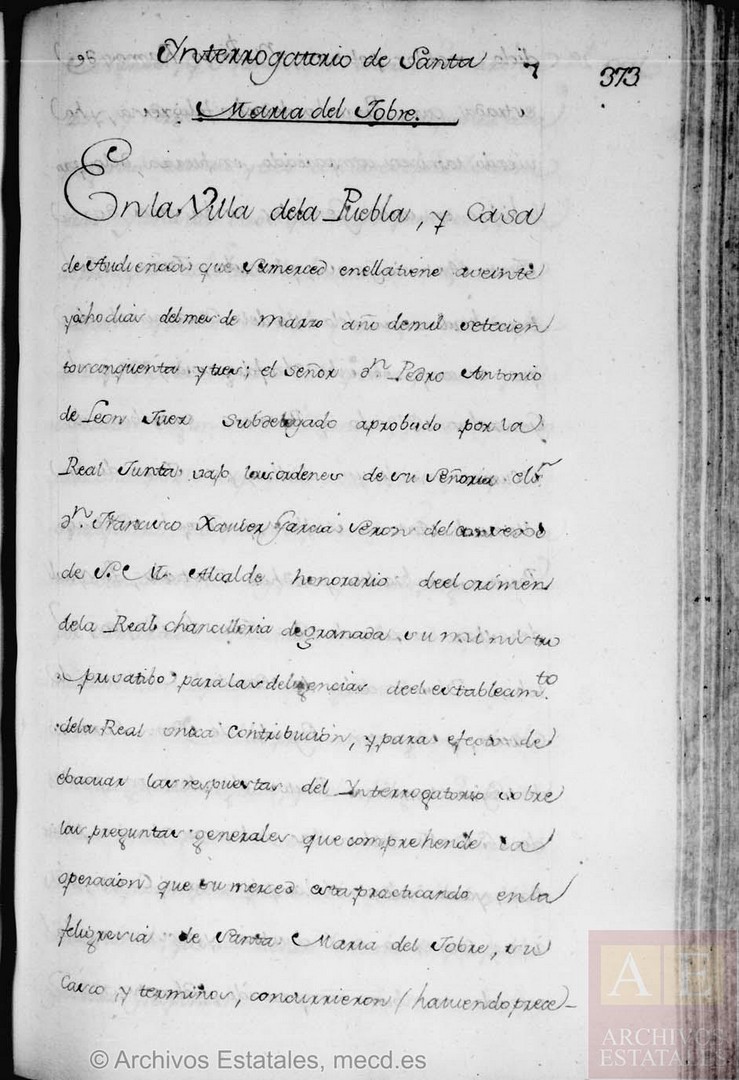 Ynterrogatorio de Santa
373
Maria del Jobre.
En la Villa dela Puebla, y Casa
de Audiencia que sumerced enella tiene aveinte
yocho dias del mes de Marzo año demil setecien
tos cinquenta ytres; el señor dn. Pedro Antonio
de Leon Juez subdelegado aprobado por la
Real Junta vajo las ordenes de su señoria elsr.
dn. Francisco Xavier Garcia Seron del consexo
de S. M. Alcalde honorario deel crimen
dela Real chancilleria degranada su ministro
privatibo para las deligencias deel establecimto.
dela Real unica Contribucion, y para efecto de
ebacuar las respuestas del Ynterrogatorio sobre
las preguntas generales que comprehende la
operacion que su merced esta practicando en la
feligresia de Santa Maria del Jobre, su
Casco y terminos, concurrieron (haviendo prece-
AE
ARCHIVOS
ESTATALES
© Archivos Estatales, mecd.es